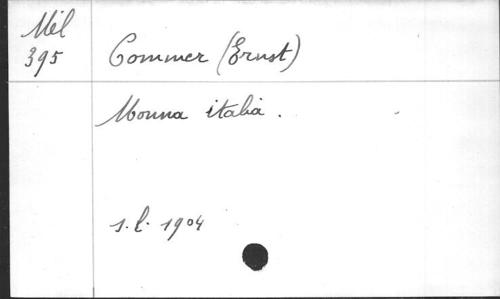 Mél
395
Commer (Ernst)
Monna italia.
s.l. 1904